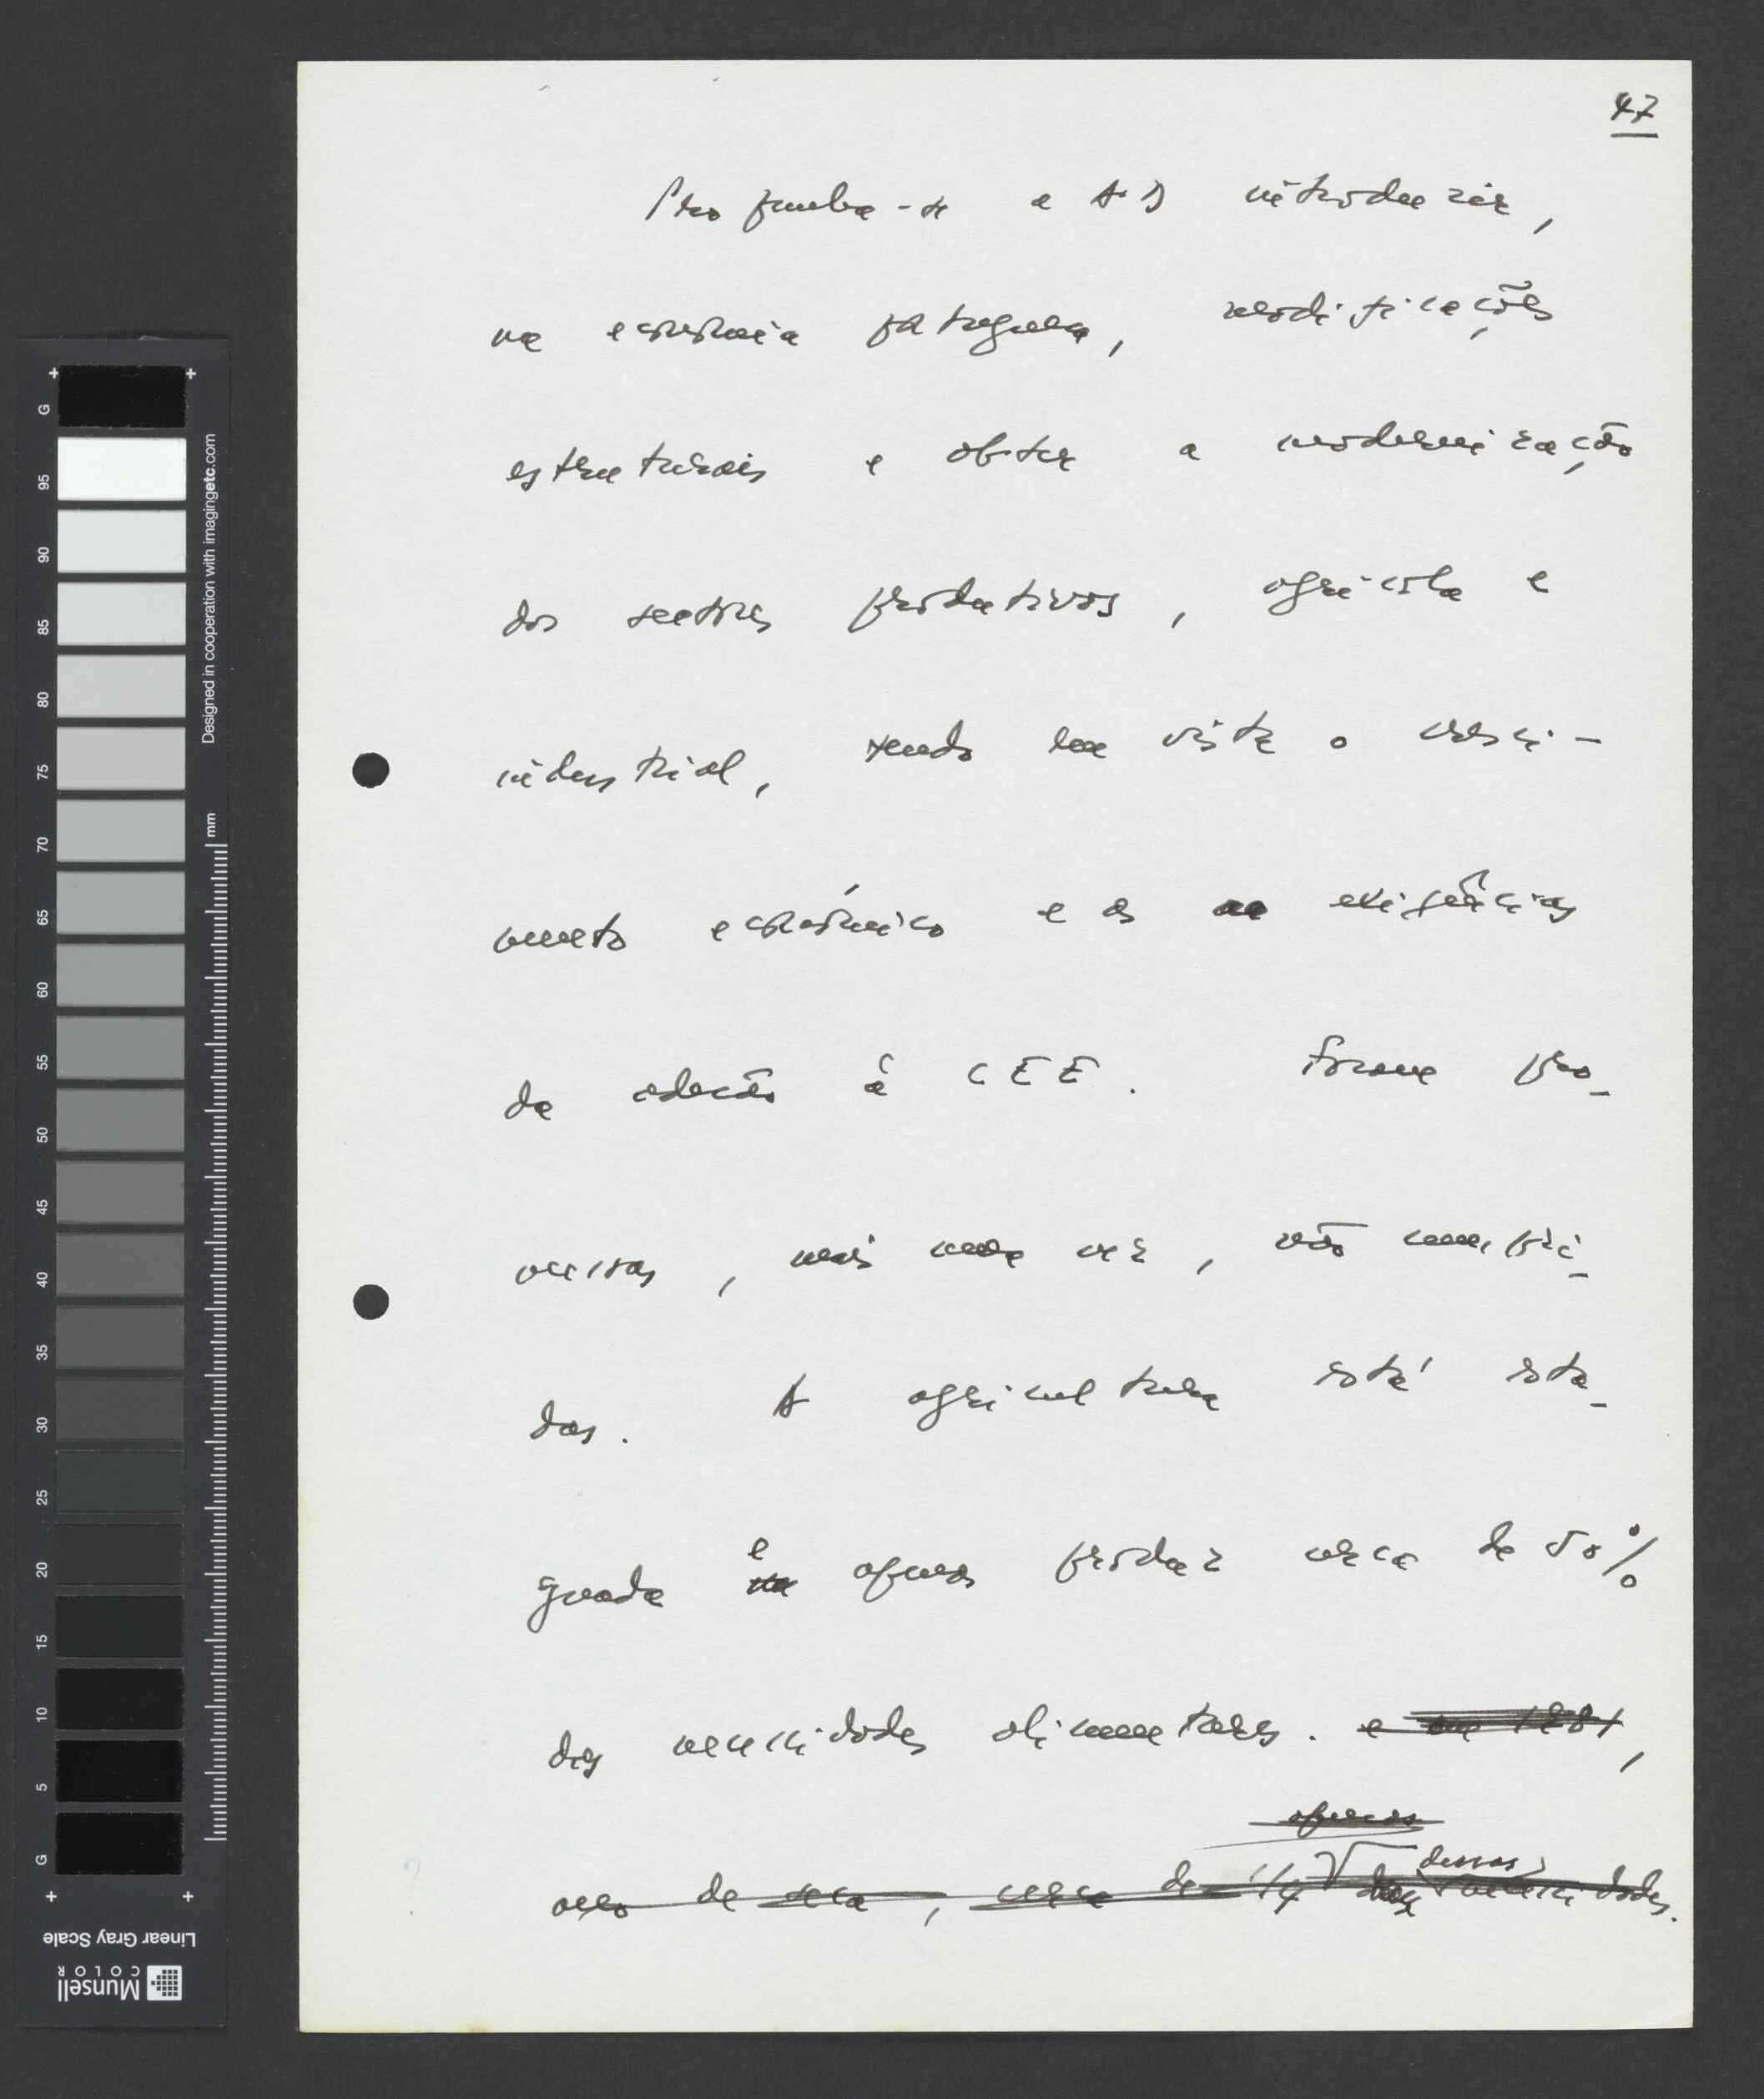 47
Propunha-se a AD introduzir,
na economia portuguesa, modificações
estruturais e obter a modernização
dos sectores produtivos, agrícola e
industrial, tendo em vista o cresci-
mento económico e as exigências
da adesão à CEE. Foram pro-
messas, mais uma vez, não cumpri-
das. A agricultura está esta-
gnada e apenas produz cerca de 50%
das necessidades alimentares. e em 1981,
apenas
dessas
ano de seca, cerca de 1/4 das necessidades.
G
95
90
85
80
75
70
65
60
55
50
45
40
35
30
25
20
15
10
5
G
Designed in cooperation with imagingetc.com
mm
Linear Gray Scale
Munsell
COLOR